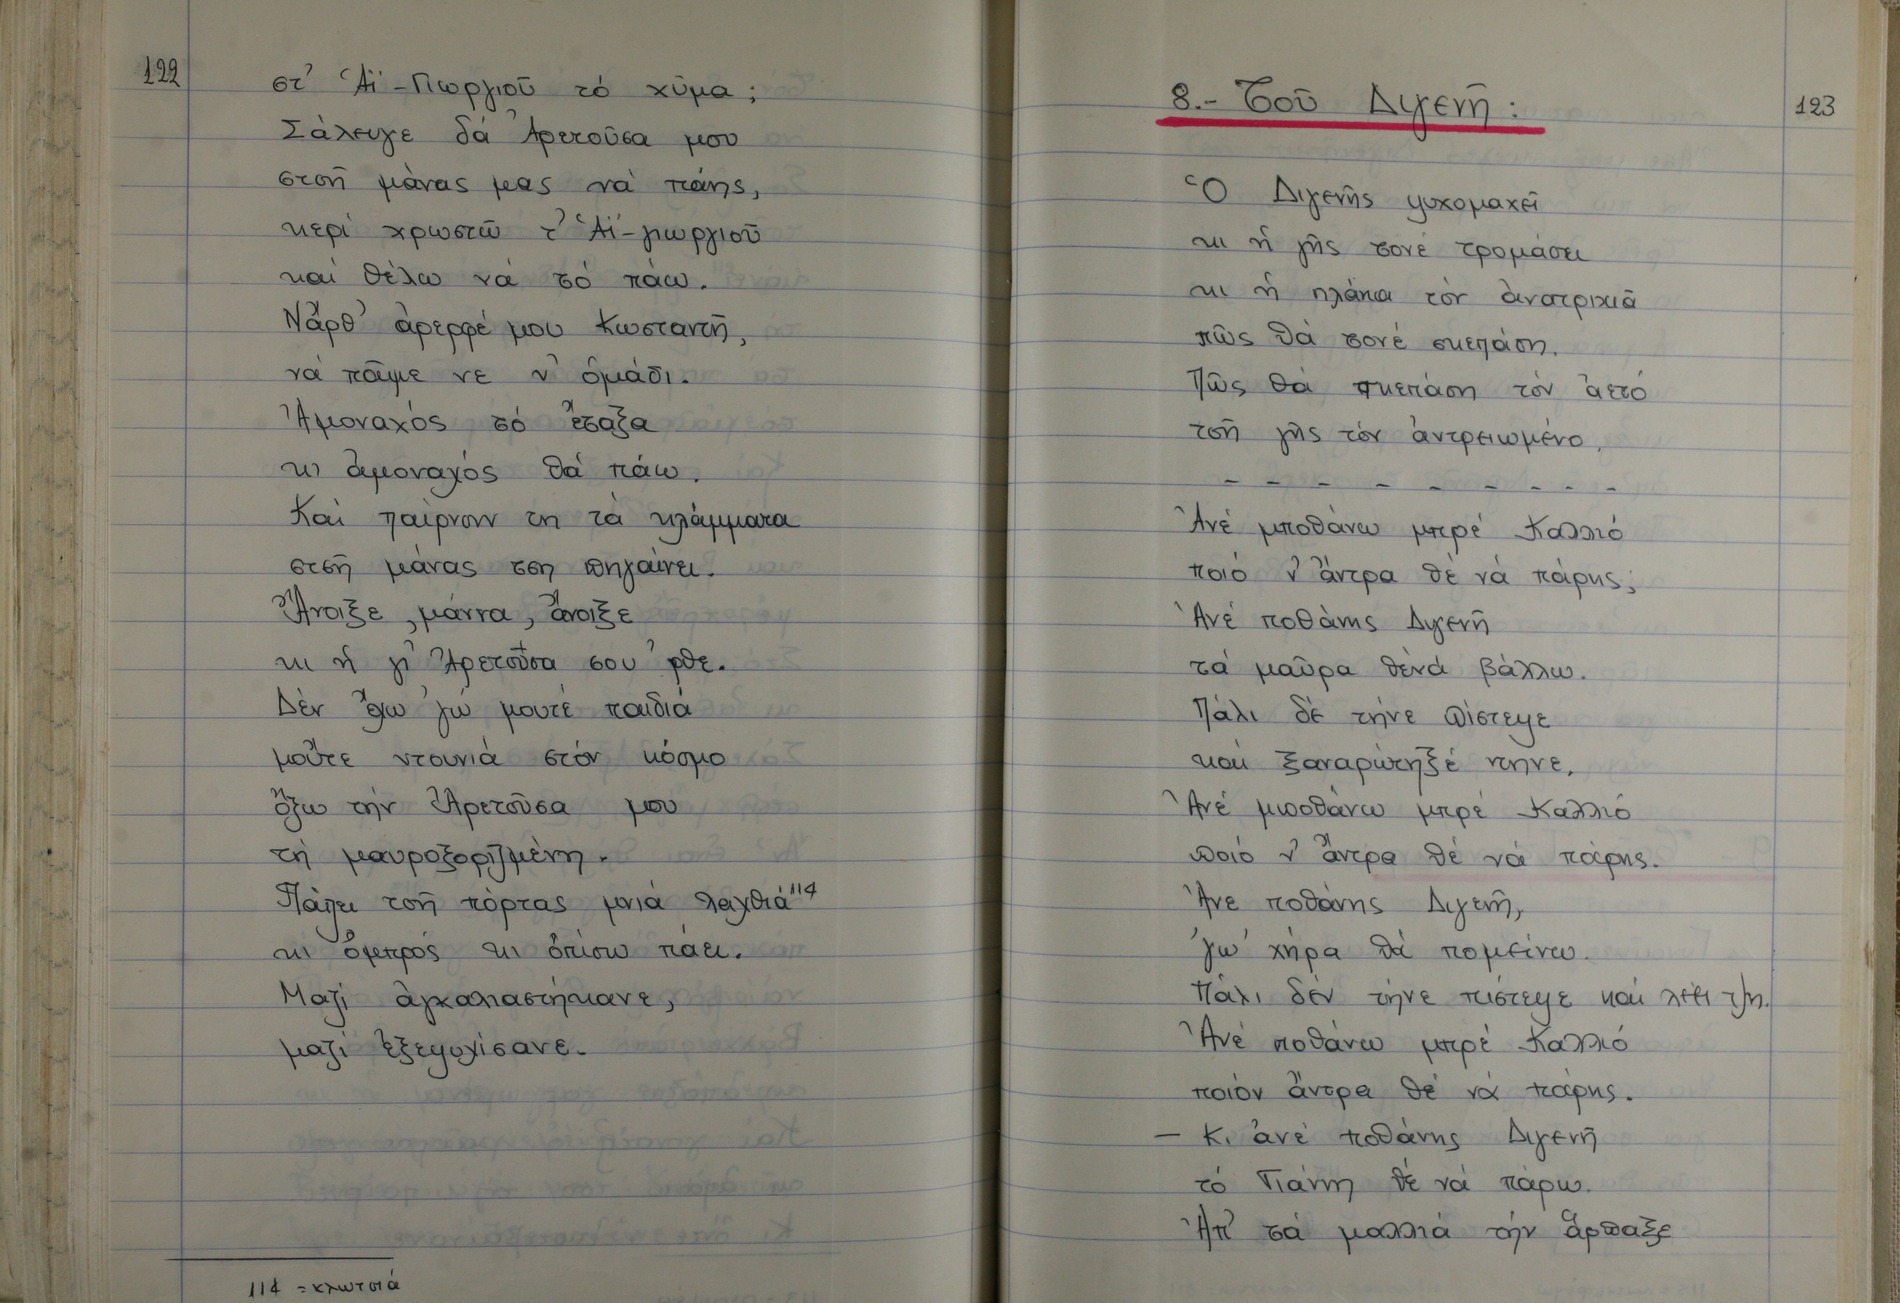 122
στ' Ἁϊ-Γιωργιοῦ τό χῦμα;
Σάλευγε δά Ἀρετοῦσα μου
στσῆ μάνας μας νά πάης,
κερί χρωστῶ τ' Ἁϊ-γιωργιοῦ
καί θέλω νά τό πάω.
Νἄρθ' ἀρερφέ μου Κωσταντῆ,
νά πᾶμε νε ν' ὁμάδι.
Ἀμοναχός τό ἔταξα
κι ἀμοναχός θά πάω.
Καί παίρνουν τη τά κλάμματα
στσῆ μάνας τση πηγαίνει.
Ἄνοιξε, μάννα, ἄνοιξε
κι ἡ γι' Ἀρετοῦσα σου 'ρθε.
Δέν ἔχω 'γώ μουτέ παιδιά
μοῦτε ντουνιά στόν κόσμο
ὄξω τήν Ἀρετοῦσα μου
τή μαυροξοριζμένη.
Παίζει τσῆ πόρτας μνιά λαχθιά¹¹⁴
κι ὀμπρός κι ὀπίσω πάει.
Μαζί ἀγκαλιαστήκανε,
μαζί ἐξεψυχίσανε.
114 = κλωτσιά
123
8.- Τοῦ Διγενῆ:
Ὁ Διγενῆς ψυχομαχεῖ
κι ἡ γῆς τονέ τρομάσει
κι ἡ πλάκα τόν ἀνατριχιᾶ
πῶς θά τονέ σκεπάση.
Πῶς θά σκεπάση τόν ἀετό
τσῆ γῆς τόν ἀντρειωμένο.
- - - - - - - - -
Ἀνέ μποθάνω μπρέ Καλλιό
ποιό ν' ἄντρα θέ νά πάρης;
Ἀνέ ποθάνης Διγενῆ
τά μαῦρα θενά βάλλω.
Πάλι δέ τήνε πίστεψε
καί ξαναρώτηξέ ντηνε,
Ἀνέ μποθάνω μπρέ Καλλιό
ποιό ν' ἄντρα θέ νά πάρης.
Ἀνε ποθάνης Διγενῆ,
'γώ χήρα θά πομείνω.
Πάλι δέν τήνε πίστεψε καί λέει τζη.
Ἀνέ ποθάνω μπρέ Καλλιό
ποιόν ἄντρα θέ νά πάρης.
— Κι ἀνέ ποθάνης Διγενῆ
τό Γιάννη θέ νά πάρω.
Ἀπ' τά μαλλιά τήν ἅρπαξε